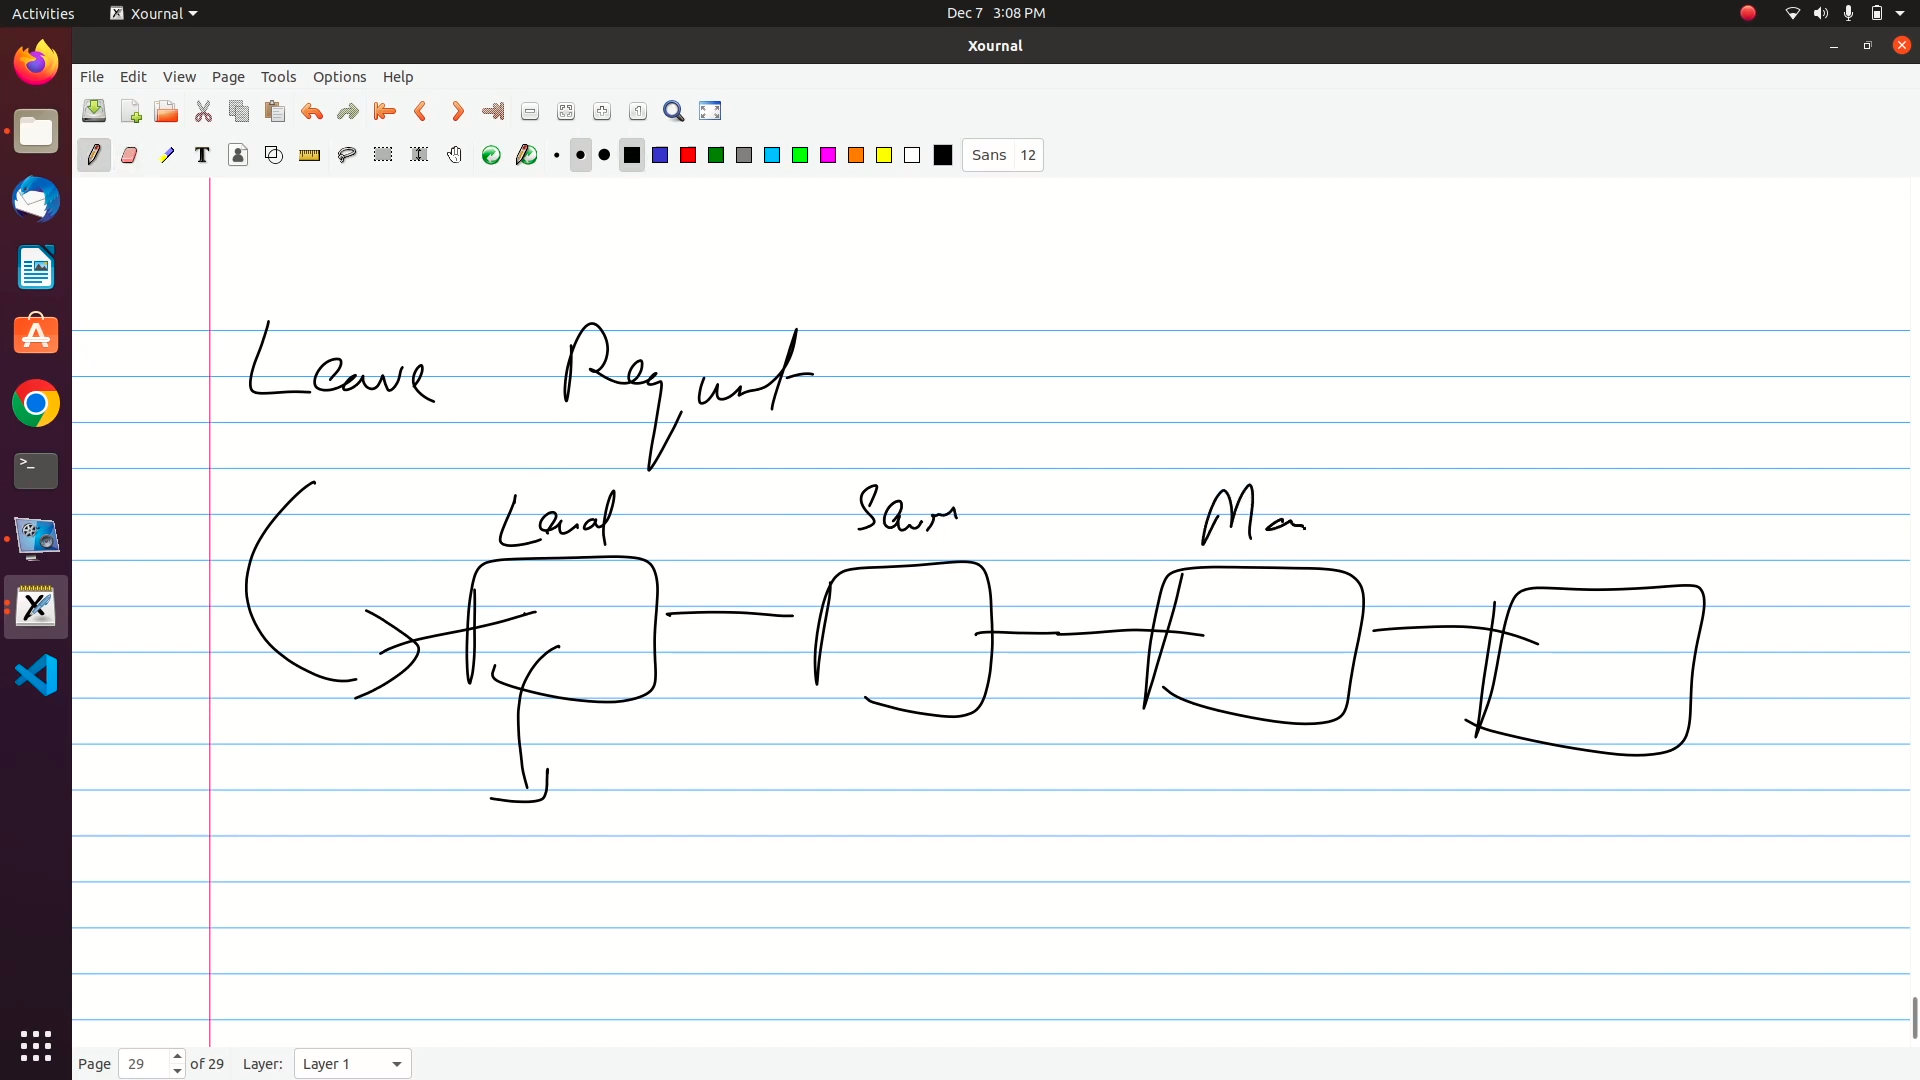 Activities Xournal Dec 7 3:08 PM
Xournal
File Edit View Page Tools Options Help
Sans 12
Leave Request
Lead Man
Page 29 of 29 Layer: Layer 1